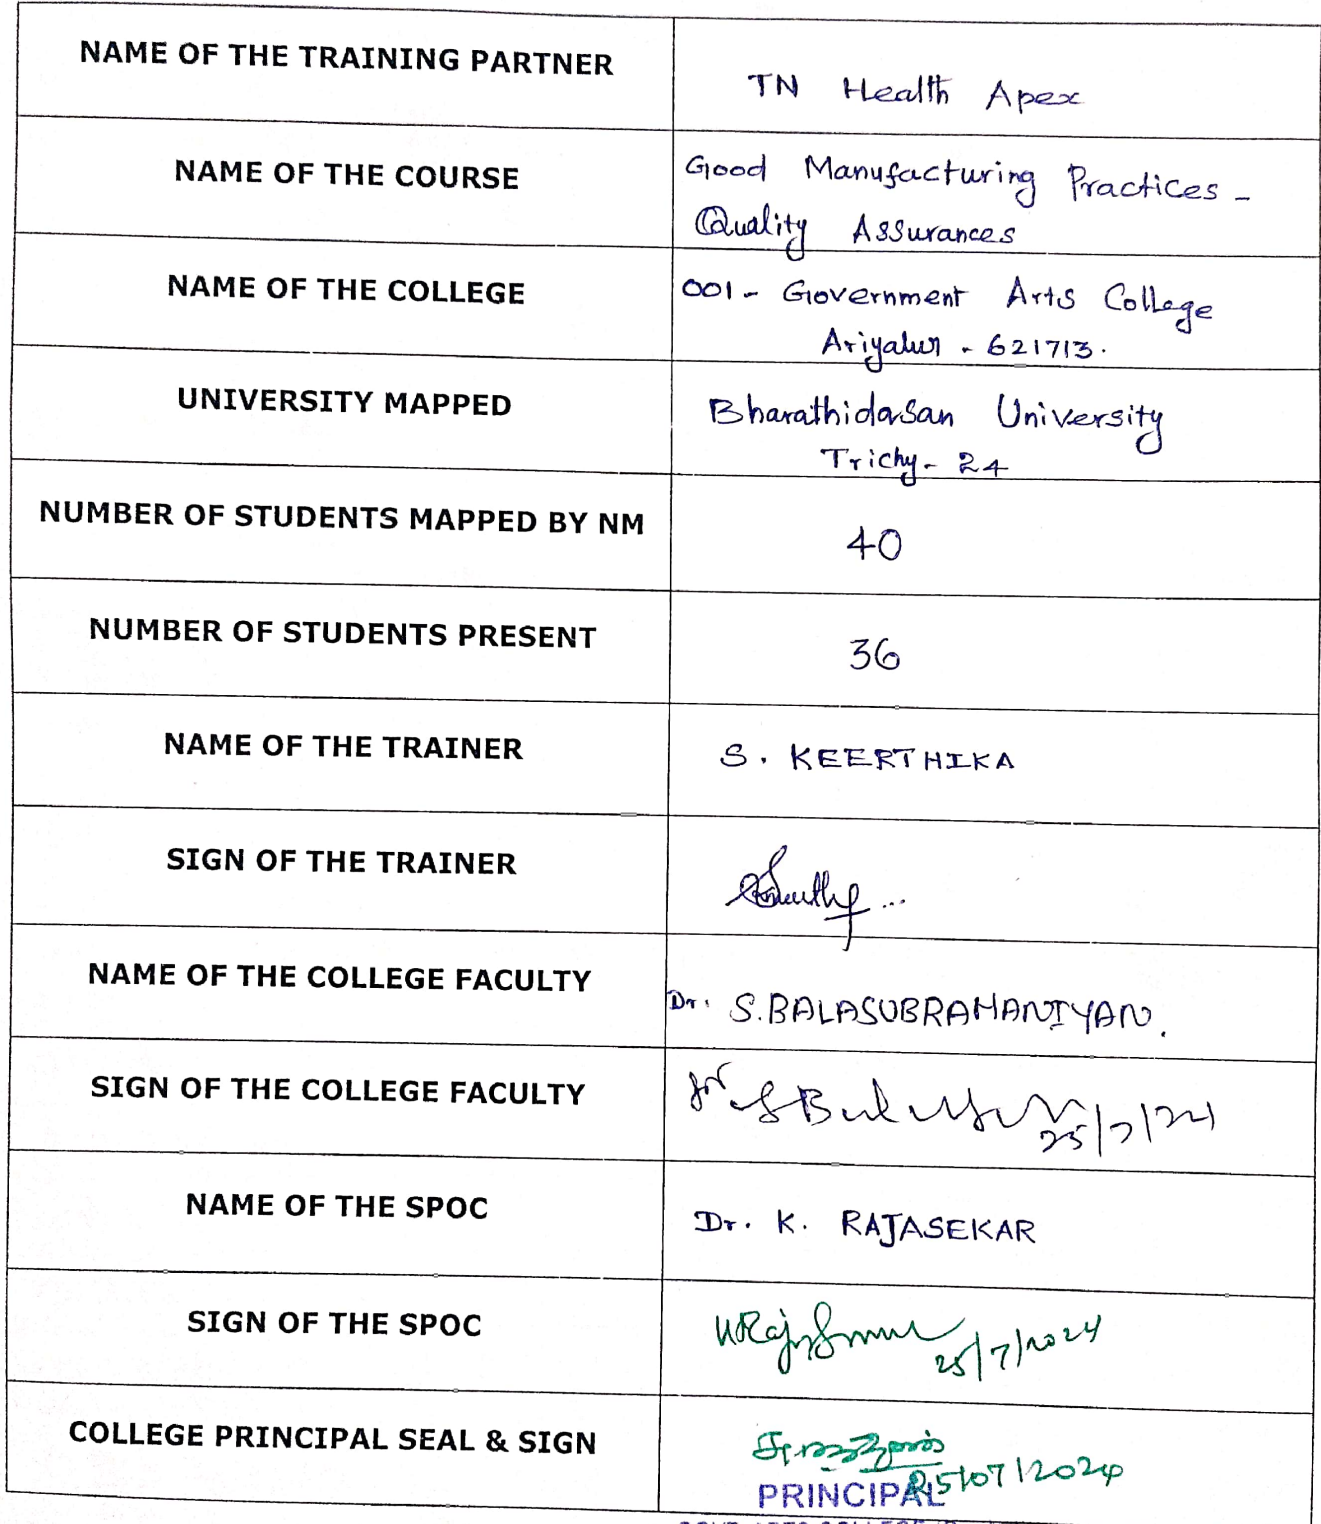 NAME OF THE TRAINING PARTNER
TN Health Apex
NAME OF THE COURSE
Good Manufacturing Practices -
Quality Assurances
NAME OF THE COLLEGE
001 - Government Arts College
Ariyalur - 621713.
UNIVERSITY MAPPED
Bharathidasan University
Trichy - 24
NUMBER OF STUDENTS MAPPED BY NM
40
NUMBER OF STUDENTS PRESENT
36
NAME OF THE TRAINER
S. KEERTHIKA
SIGN OF THE TRAINER
NAME OF THE COLLEGE FACULTY
Dr. S.BALASUBRAMANIYAN.
SIGN OF THE COLLEGE FACULTY
25/7/24
NAME OF THE SPOC
Dr. K. RAJASEKAR
SIGN OF THE SPOC
25/7/2024
COLLEGE PRINCIPAL SEAL & SIGN
25/07/2024
PRINCIPAL